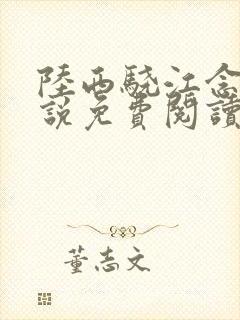 陸西驍江念
說免費閱讀
董志文